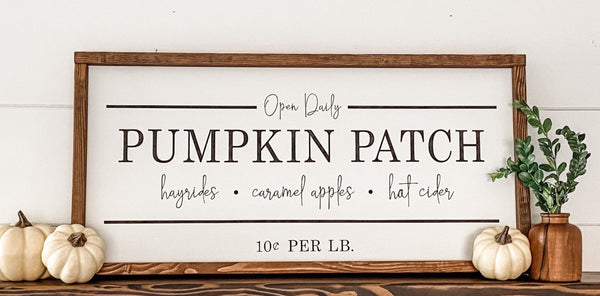 Open Daily
PUMPKIN PATCH
hayrides • caramel apples • hot cider
10¢ PER LB.